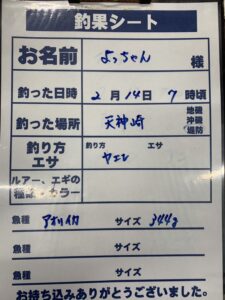 釣果シート
お名前 よっちゃん 様
釣った日時 2月14日 7時頃
釣った場所 天神崎 地磯 沖磯 堤防
釣り方 エサ 釣り方 ヤエン エサ
ルアー、エギの
種類・カラー
魚種 アオリイカ サイズ 344g
魚種 サイズ
魚種 サイズ
お持ち込みありがとうございました。